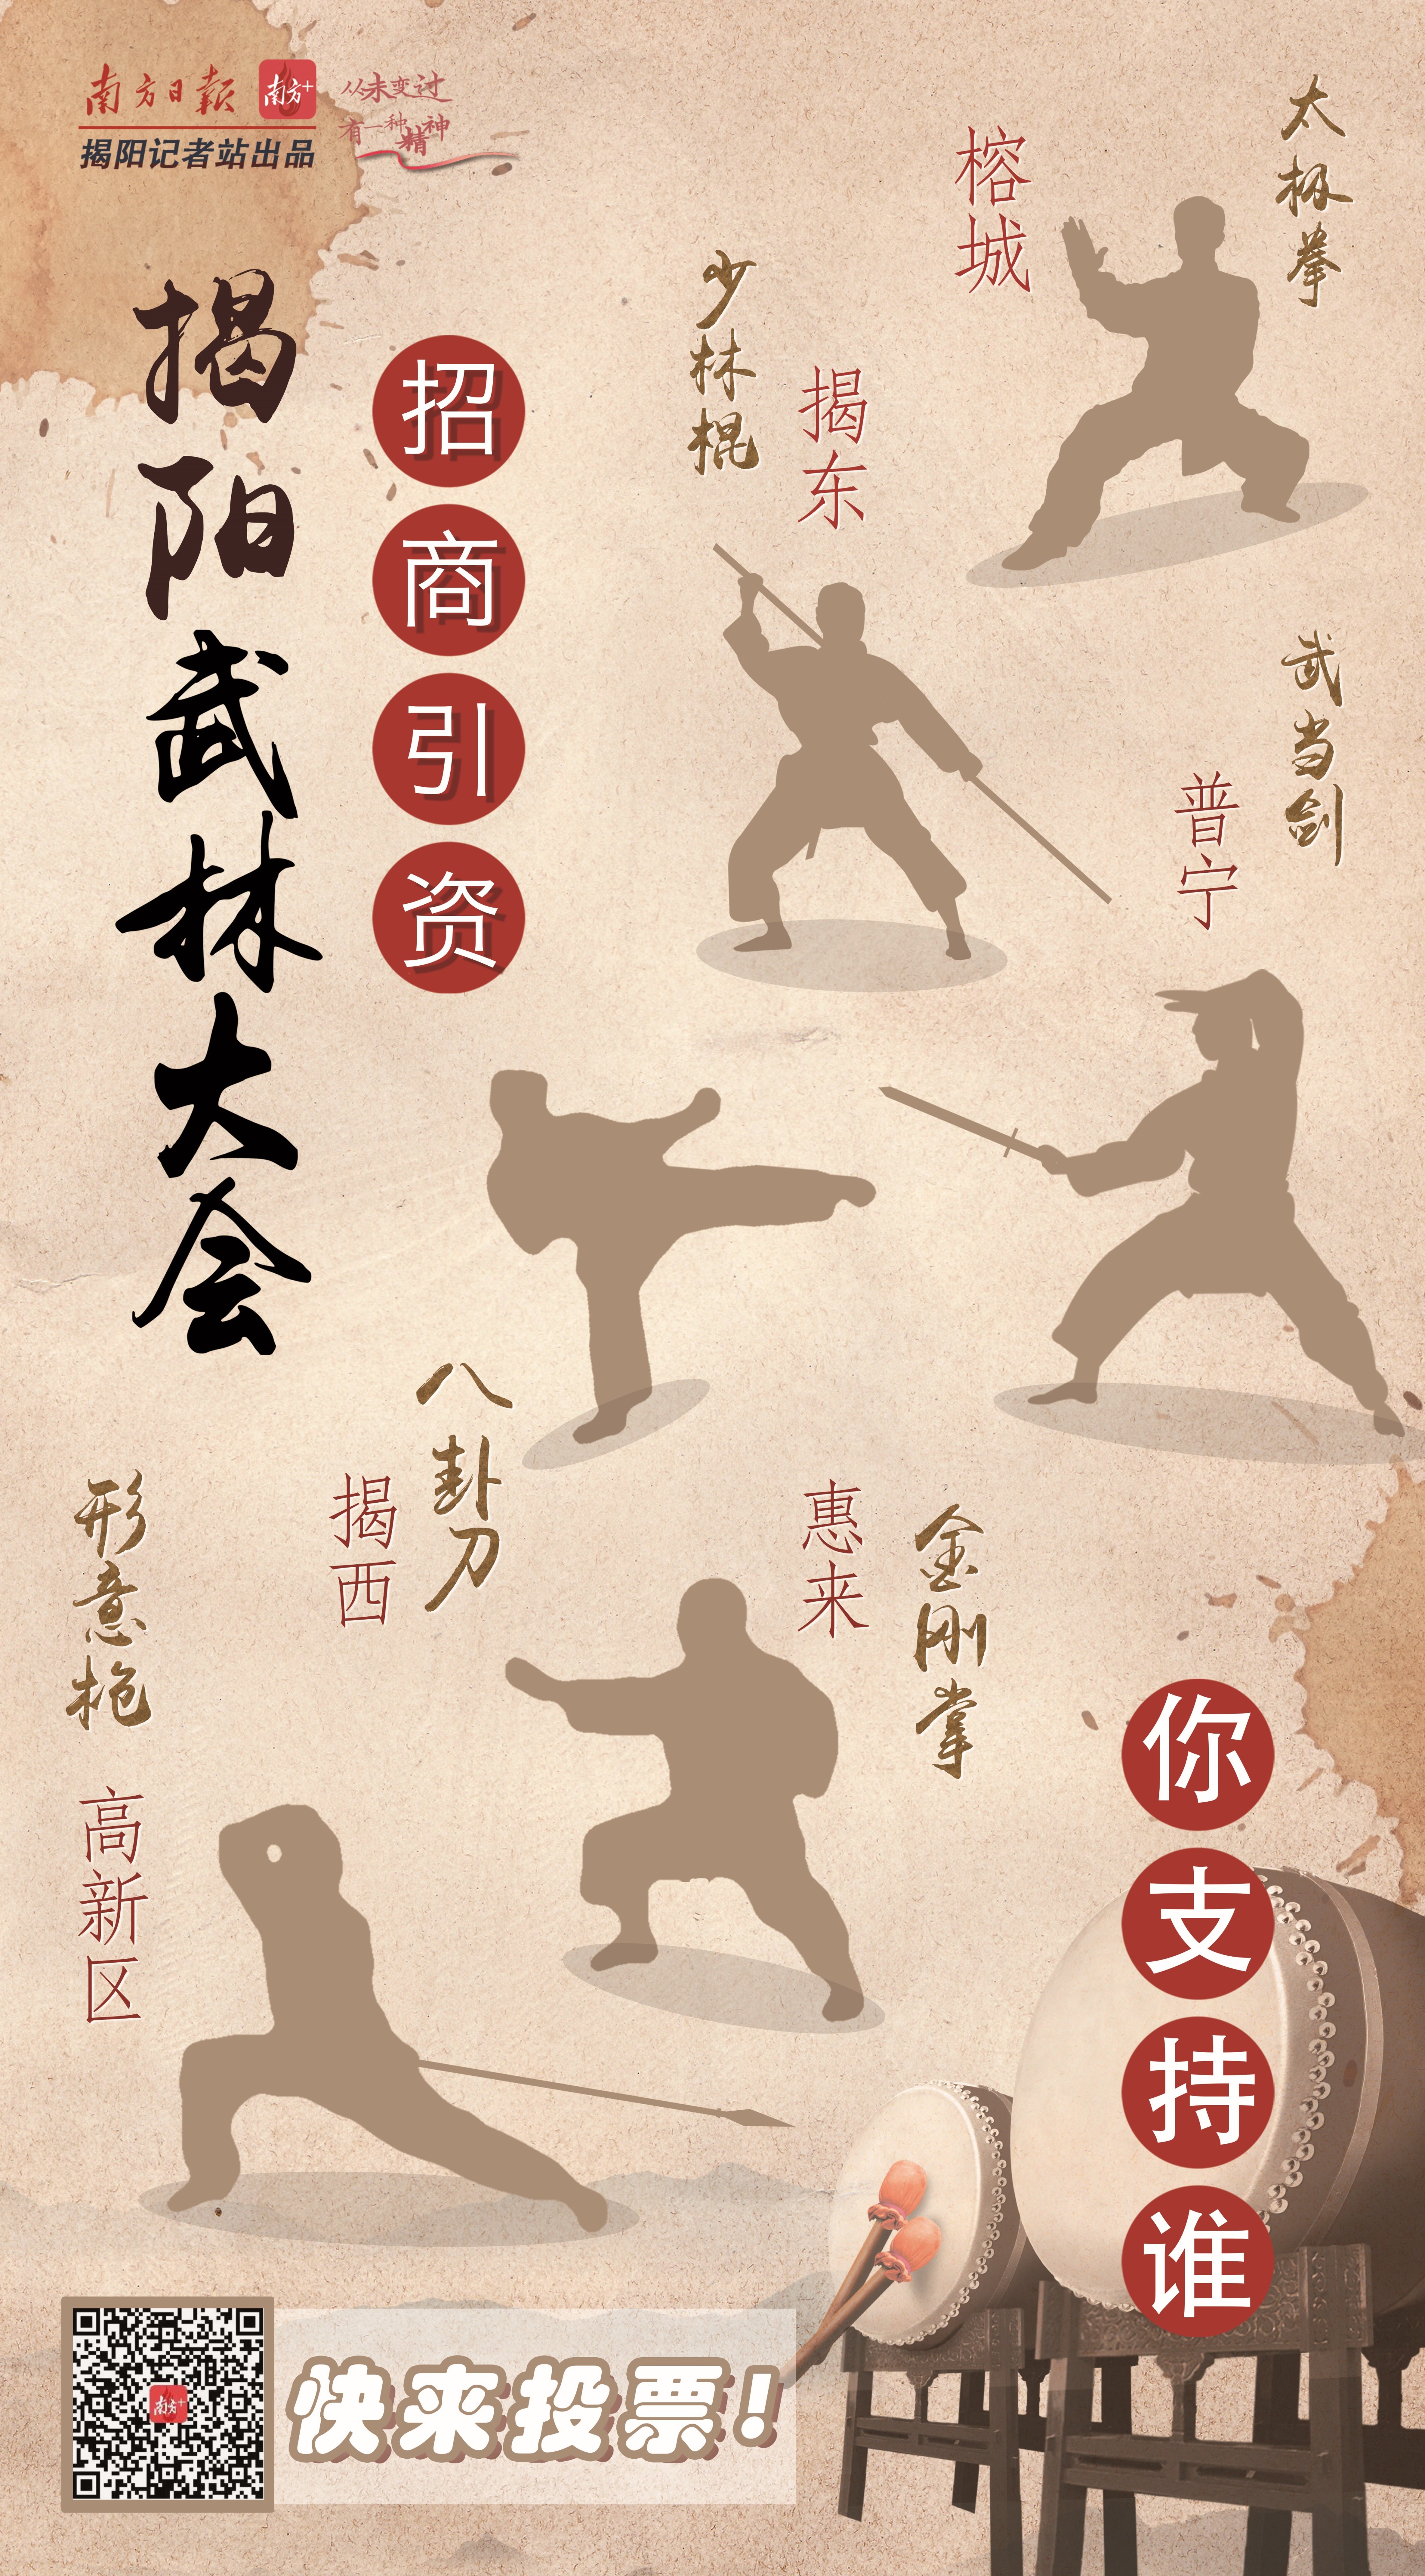 南方日報 南方+
揭阳记者站出品
从未变过
有一种精神
揭阳武林大会
招商引资
太极拳
榕城
少林棍
揭东
武当剑
普宁
八卦刀
揭西
金刚掌
惠来
形意枪
高新区
你支持谁
南方+
快来投票!